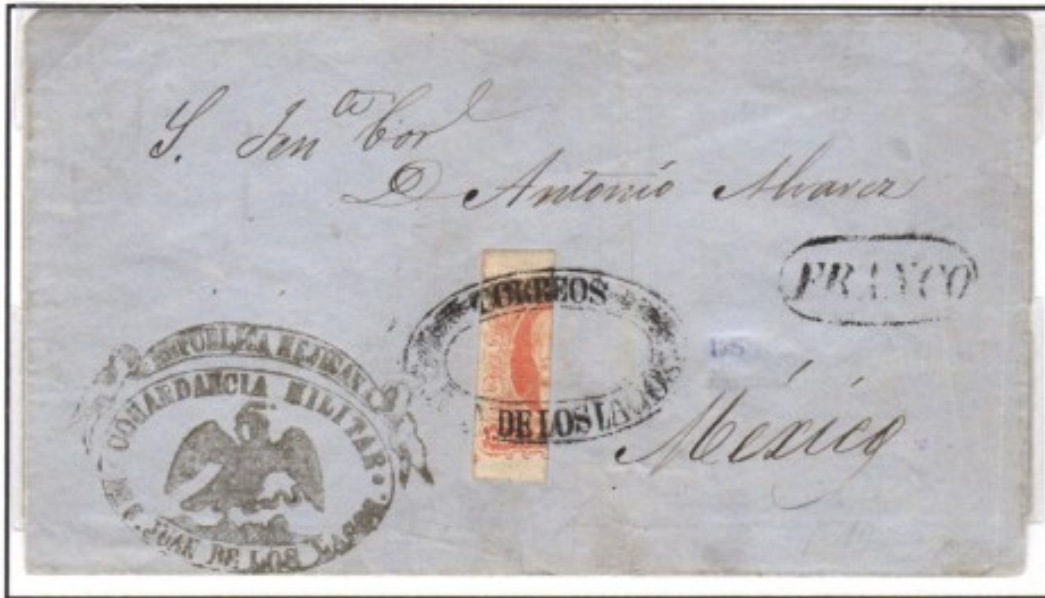 S. Jen.te Cor.l
D. Antonio Alvarez
FRANCO
CORREOS
DE LOS LAGOS
México
REPUBLICA MEJICANA
COMANDANCIA MILITAR
JUAN DE LOS LAGOS